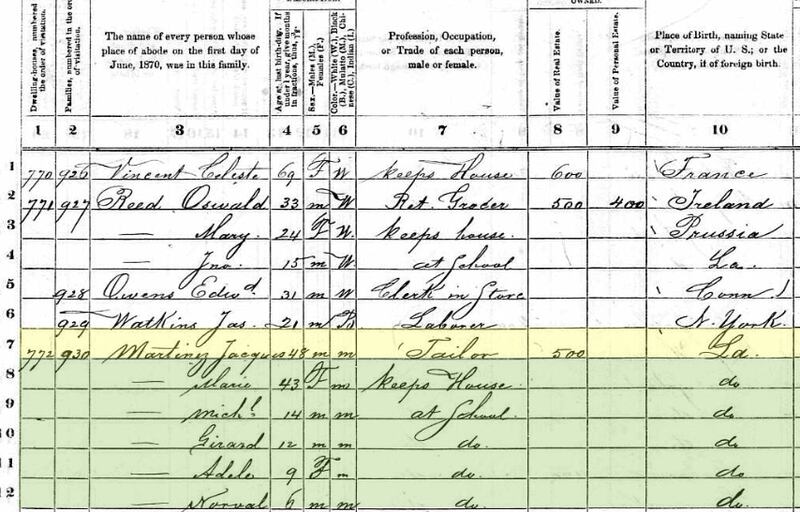 OWNED.
Dwelling-houses, numbered in the order of visitation.
Families, numbered in the order of visitation.
The name of every person whose place of abode on the first day of June, 1870, was in this family.
Age at last birth-day. If under 1 year, give months in fractions, thus,
Sex.—Males (M.), Females (F.)
Color.—White (W.), Black (B.), Mulatto (M.), Chinese (C.), Indian (I.)
Profession, Occupation, or Trade of each person, male or female.
Value of Real Estate.
Value of Personal Estate.
Place of Birth, naming State or Territory of U. S.; or the Country, if of foreign birth.
1 2 3 4 5 6 7 8 9 10
1 770 926 Vincent Celeste 69 F W Keeps House 600 France
2 771 927 Reed Oswald 33 m W Ret. Grocer 500 400 Ireland
3 — Mary 24 F W. Keeps house. Prussia
4 — Jno. 15 m W. at School La.
5 928 Owens Edwd. 31 m W Clerk in Store Conn
6 929 Watkins Jas. 21 m B Laborer N. York.
7 772 930 Martinez Jacques 48 m m Tailor 500 La.
8 — Marie 43 F m Keeps House do
9 — Michl. 14 m m at School. do
10 — Girard 12 m m do. do
11 — Adele 9 F m do. do
12 — Norval 6 m m do. do.